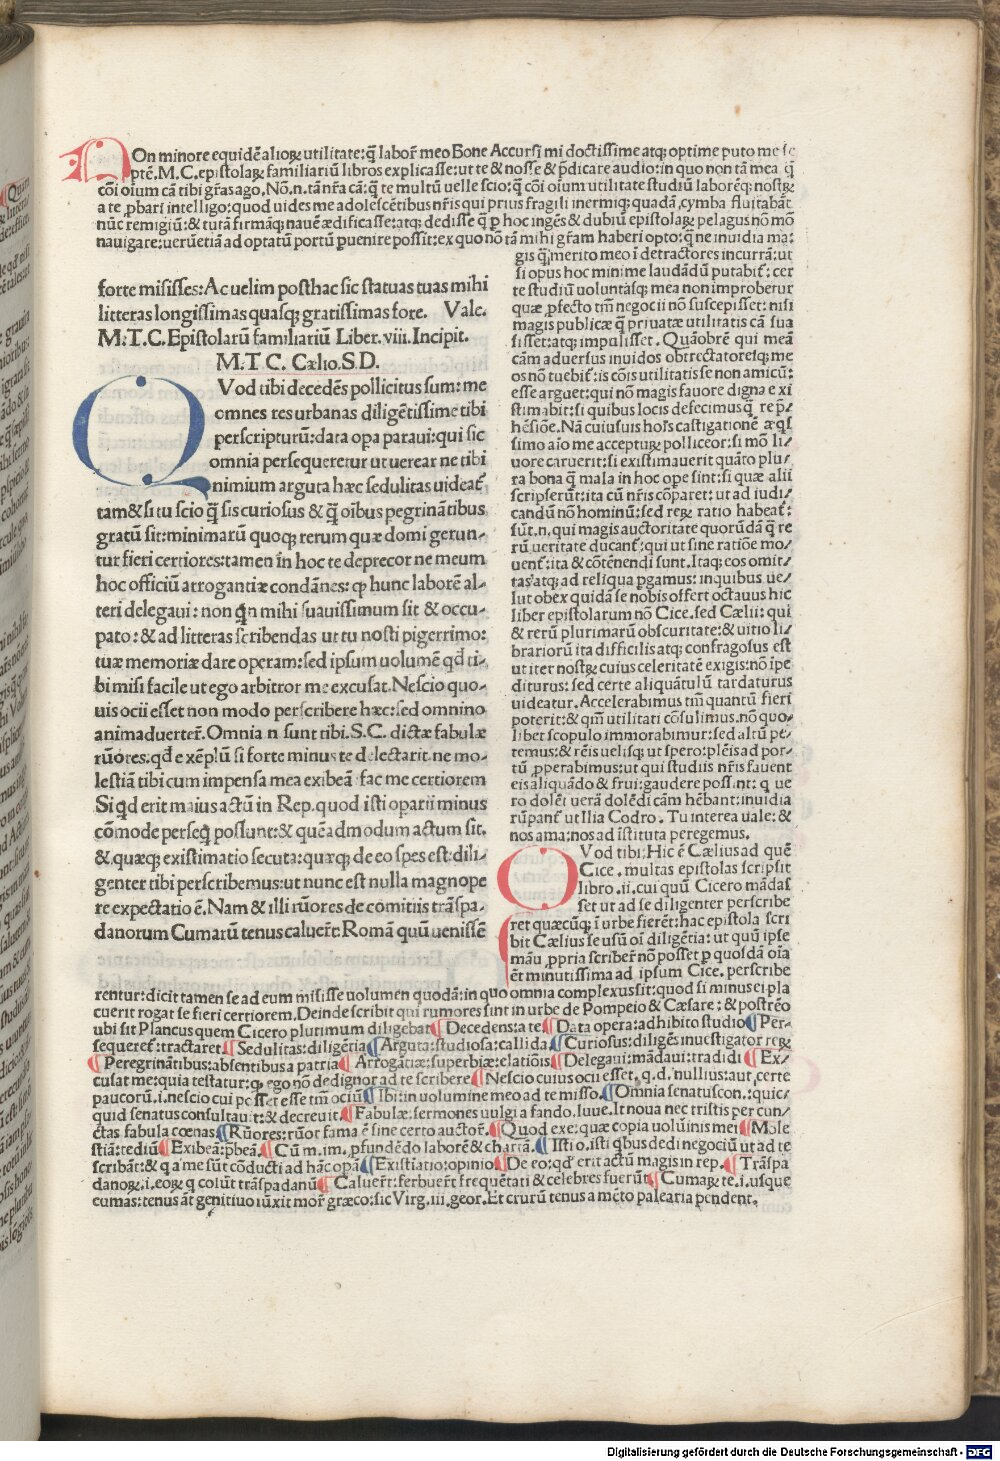 NOn minore equidē alioꝝ utilitate: q̄ labor̄ meo Bone Accursi mi doctissime atq; optime puto me se
ptē. M.C. epistolaꝝ familiariū libros explicasse: ut te & nosse & p̄dicare audio: in quo non tā mea q̄
cōi oium cā tibi gr̄as ago. Nō. n. tā nr̄a cā: q̄ te multū uelle scio: q̄ cōi oium utilitate studiū laborēq; nostꝝ
a te ꝓbari intelligo: quod uides me adolescētibus nr̄is qui prius fragili inermiq; quadā cymba fluitabāt
nūc remigiū: & tutā firmāq; nauē ædificasse: atq; dedisse q̄ p hoc ingēs & dubiū epistolaꝝ pelagus nō mō
nauigare: uerūetiā ad optatū portū puenire possit: ex quo nō tā mihi gr̄am haberi opto: q̄ ne inuidia ma:
forte misisses: Ac uelim posthac sic statuas tuas mihi
litteras longissimas quasq; gratissimas fore. Vale.
M.T.C. Epistolarū familiariū Liber. viii. Incipit.
M.T.C. Cælio. S.D.
QVod tibi decedēs pollicitus sum: me
omnes res urbanas diligētissime tibi
perscripturū: data opa paraui: qui sic
omnia persequeretur ut uerear ne tibi
nimium arguta hæc sedulitas uideat̄
tam & si tu scio q̄ sis curiosus & q̄ oībus pegrinātibus
gratū sit: minimarū quoq; rerum quæ domi gerun-
tur fieri certiores: tamen in hoc te deprecor ne meum
hoc officiū arrogantiæ condānes: ꝙ hunc laborē al-
teri delegaui: non qn mihi suauissimum sit & occu-
pato: & ad litteras scribendas ut tu nosti pigerrimo:
tuæ memoriæ dare operam: sed ipsum uolumē qd ti-
bi misi facile ut ego arbitror me excusat. Nescio quo-
uis ocii esset non modo perscribere hæc: sed omnino
animaduerter̄. Omnia n sunt tibi. S.C. dictæ fabulæ
rūores. qd e xēplū si forte minus te delectarit. ne mo-
lestiā tibi cum impensa mea exibeā fac me certiorem
Si qd erit maius actū in Rep. quod isti oparii minus
cōmode perseq possunt: & quē admodum actum sit.
& quæq; existimatio secuta: quæq; de eo spes est: dili-
genter tibi perscribemus: ut nunc est nulla magnope
re expectatio ē. Nam & illi rūores de comitiis trāspa-
danorum Cumarū tenus caluer̄t: Romā quū uenissē
gis q̄ merito meo ī detractores incurrā: ut
si opus hoc minime laudādū putabit̄: cer
te studiū uoluntasq; mea non improbetur
quæ pfecto tm̄ negocii nō suscepisset: nisi
magis publicæ q̄ priuatæ utilitatis cā sua
sisset: atq; impulisset. Quāobrē qui meā
cām aduersus inuidos obtrectatoresq; me
os nō tuebit̄: is cōis utilitatis se non amicū:
esse arguet: qui nō magis fauore digna e xi
stimabit: si quibus locis defecimus q̄ rep̄
hēsiōe. Nā cuiusuis hoīs castigationē æqs̄
simo aīo me accepturꝝ polliceor: si mō li-
uore caruerit: si existimauerit quāto plu-
ra bona q̄ mala in hoc ope sint: si quæ alii
scripserūt: ita cū nr̄is cōparet: ut ad iudi-
candū nō hominū: sed reꝝ ratio habeat̄:
sūt. n. qui magis auctoritate quorūdā q̄ re
rū ueritate ducant̄: qui ut sine ratiōe mo-
uent̄: ita & cōtēnendi sunt. Itaq; eos omit-
tas atq; ad reliqua pgamus: in quibus ue-
lut obex quidā se nobis offert octauus hic
liber epistolarum nō Cice. sed Cælii: qui
& rerū plurimarū obscuritate: & uitio li-
brariorū ita difficilis atq; confragosus est
ut iter nostꝝ cuius celeritatē exigis: nō īpe
diturus: sed certe aliquātulū tardaturus
uideatur. Accelerabimus tm̄ quantū fieri
poterit: & qm̄ utilitati cōsulimus. nō quo-
libet scopulo immorabimur: sed altū pe-
temus: & rēis uelisq; ut spero: plēis ad por-
tū ꝓperabimus: ut qui studiis nr̄is fauent
eis aliquādo & frui: gaudere possint: q ue
ro dolēt uerā dolēdi cām hēbant: inuidia
rūpant̄ ut Ilia Codro. Tu interea uale: &
nos ama: nos ad īstituta peregemus.
QVod tibi: Hic ē Cælius ad quē
Cice. multas epistolas scripsit
libro. ii. cui quū Cicero mādas
set ut ad se diligenter perscribe
ret quæcūq; ī urbe fierēt: hac epistola scri
bit Cælius se usū oī diligētia: ut quū ipse
manu ꝓpria scriber̄ nō posset p quosdā oīa
ēt minutissima ad ipsum Cice. perscribe
rentur: dicit tamen se ad eum misisse uolumen quodā: in quo omnia complexus sit: quod si minus ei pla
cuerit rogat se fieri certiorem. Deinde scribit qui rumores sint in urbe de Pompeio & Cæsare: & postrēo
ubi sit Plancus quem Cicero plurimum diligebat. Decedens: a te Data opera: adhibito studio Per-
sequeret̄: tractaret Sedulitas: diligētia Arguta: studiosa: callida Curiosus: diligēs inuestigator reꝝ
Peregrinātibus: absentibus a patria Arrogātiæ: superbiæ: elatiōis Delegaui: mādaui: tradidi Ex-
cusat me: quia testatur: ꝙ ego nō dedignor ad te scribere Nescio cuius ocii esset. q.d. nullius: aut certe
paucorū. i. nescio cui posset esse tm̄ ociū Ibi: in uolumine meo ad te misso. Omnia senatuscon.: quic-
quid senatus consultauit: & decreuit. Fabulæ: sermones uulgi a fando. Iuue. Et noua nec tristis per cun-
ctas fabula cœnas Rūores: rūor fama ē sine certo auctoē. Quod exe: quæ copia uolūinis mei Mole
stiā: tediū Exibeā: p̄beā. Cū m. im. ꝓfundēdo laborē & chartā. Isti o. isti qbus dedi negociū ut ad te
scribāt: & q a me sūt cōducti ad hāc opā Existiatio: opinio De eo: qd erit actū magis in rep. Trāspa
danoꝝ. i. eoꝝ q colūt trāspadanū Caluer̄t: ferbuer̄t frequētati & celebres fuerūt Cumaꝝ te. i. usque
cumas: tenus āt genitiuo iūxit mor̄ græco: sic Virg. iii. geor. Et crurū tenus a mēto palearia pendent.
Digitalisierung gefördert durch die Deutsche Forschungsgemeinschaft - DFG